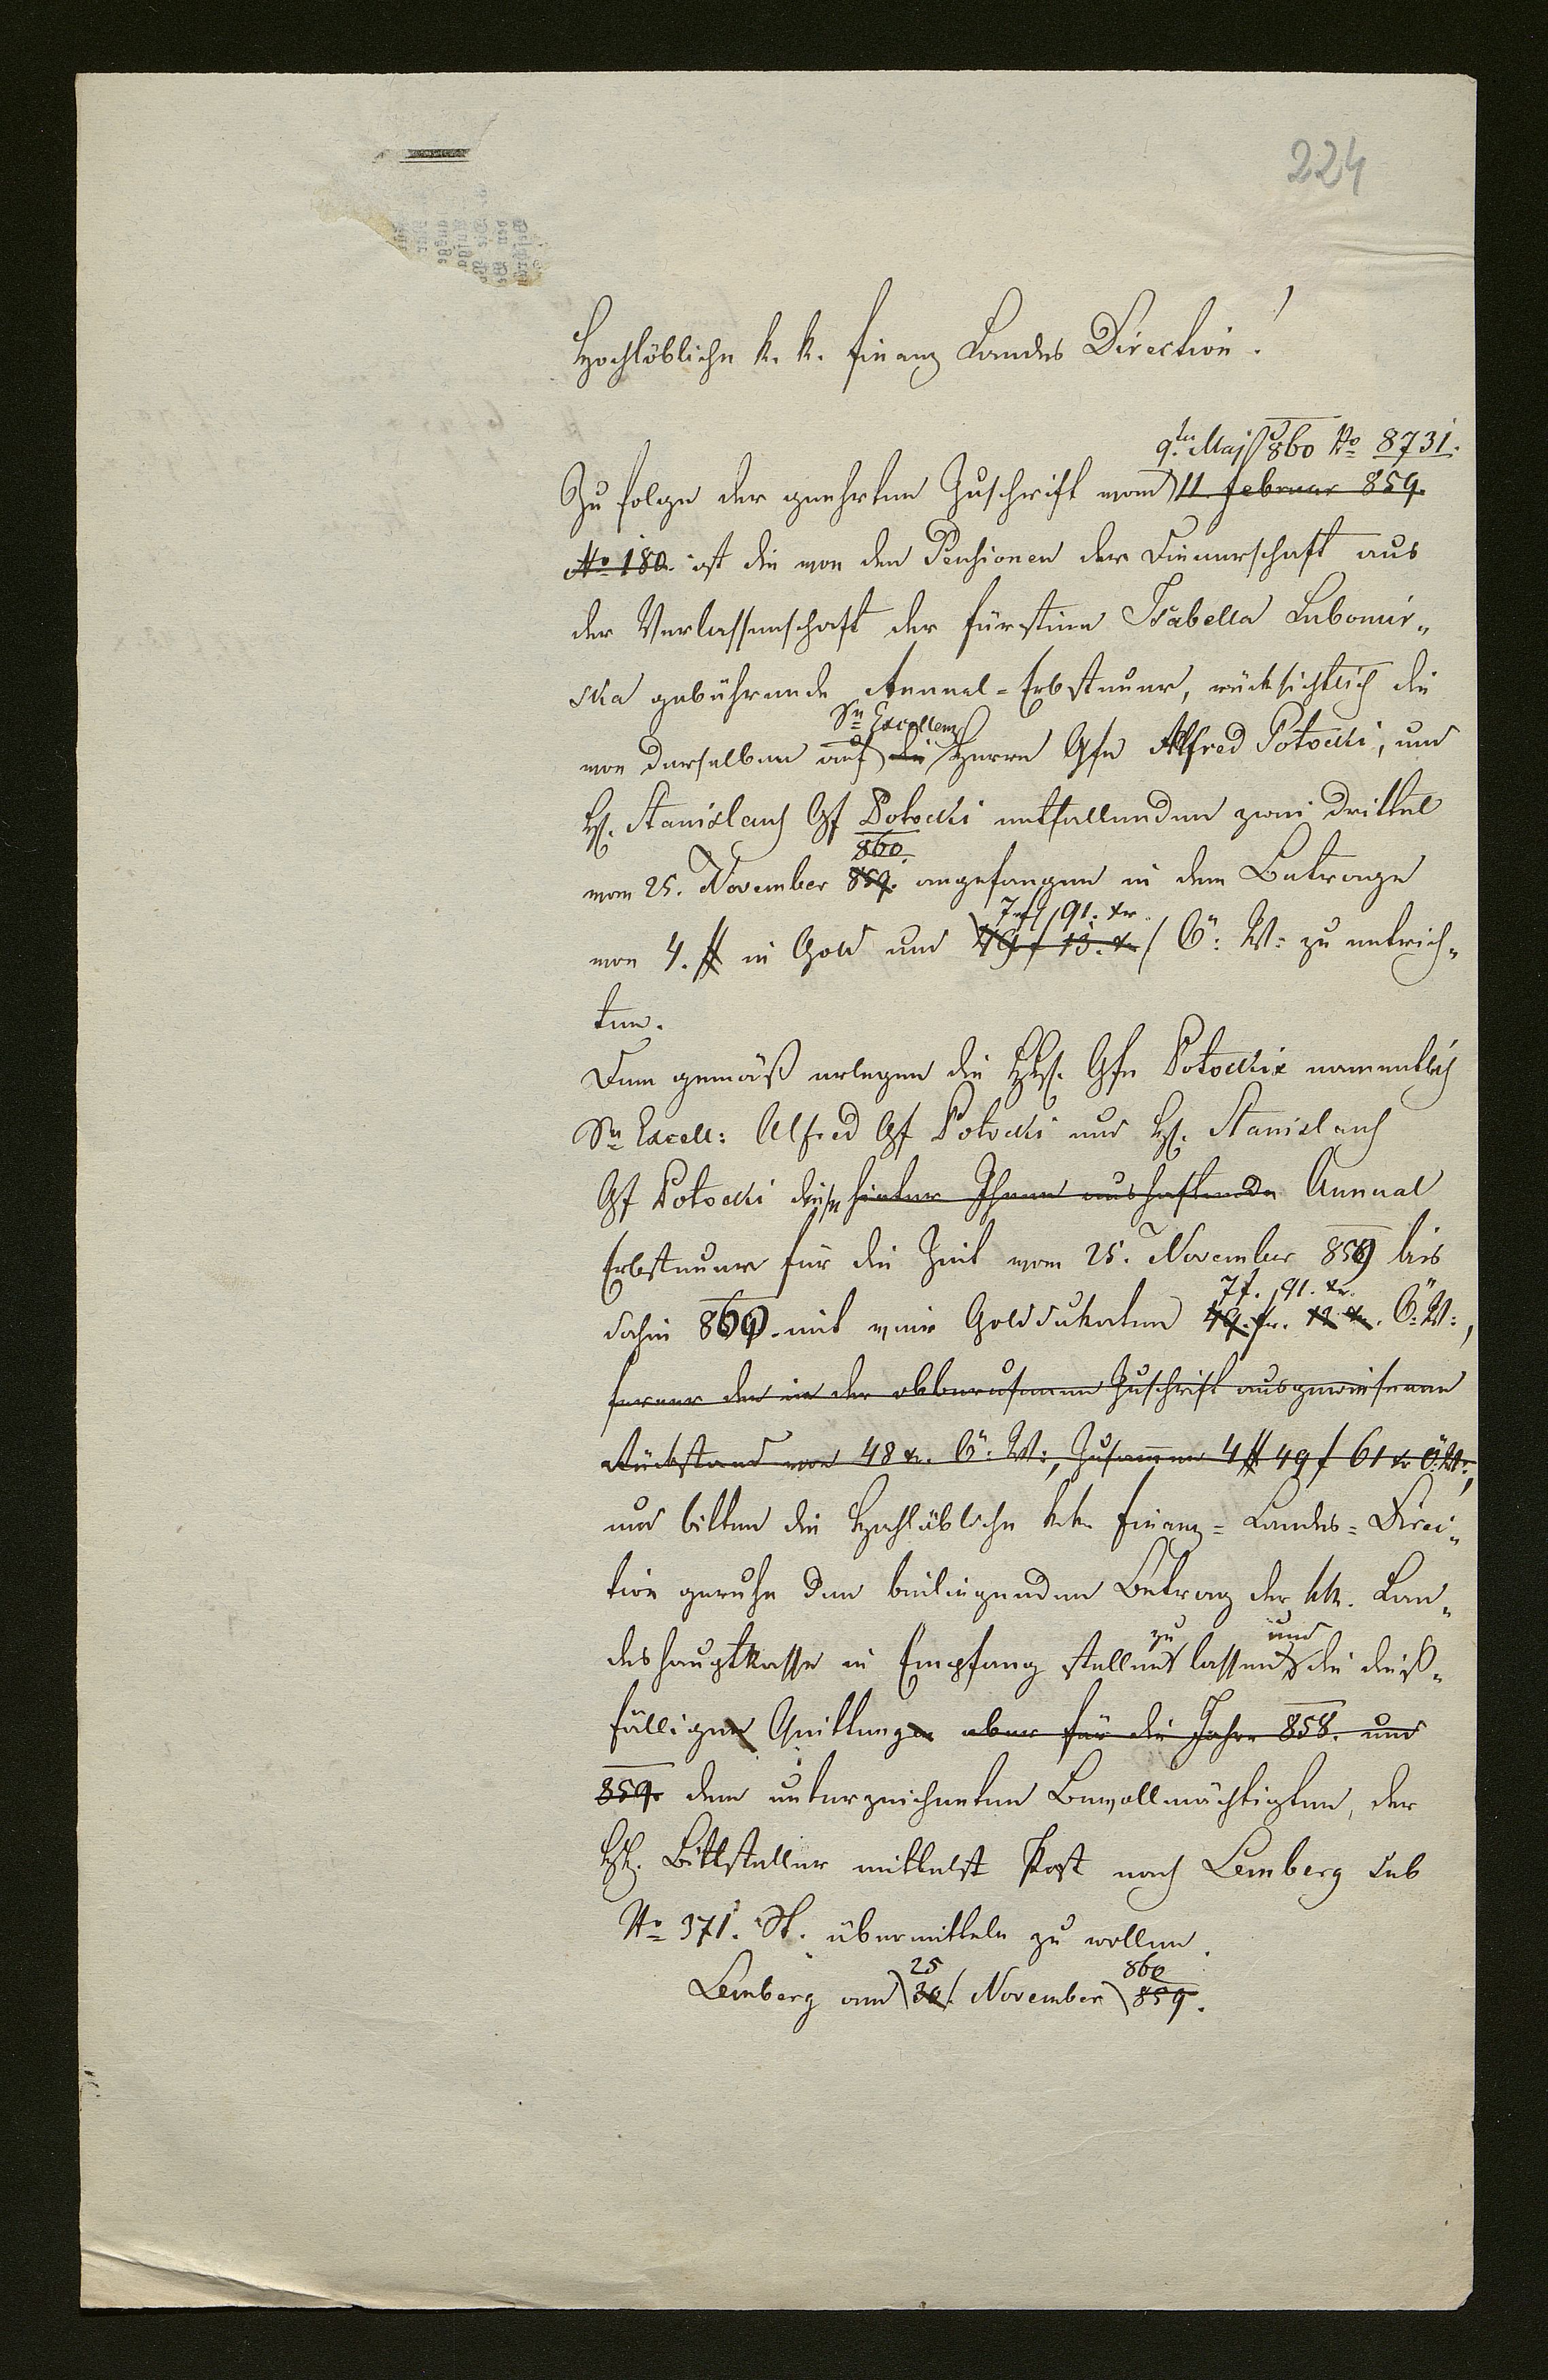 224
Hochlöbliche k. k. Finanz Landes Direction!
9ten Maj 860 No 8731.
Zu folge der geehrten Zuschrift vom 11. Februar 859.
No 180. ist die von den Pensionen der Dienerschaft aus
der Verlassenschaft der Fürstinn Isabella Lubomir„
ska gebührende Annual-Erbsteuer, rücksichtlich die
Se Excellenz
von derselben auf die Herrn Gfn Alfred Potocki, und
H. Stanislaus Gf Potocki entfallenden zwei Drittel
860.
vom 25. November 859. angefangen in dem Betrage
7 f 91. xr.
von 4. # in Gold und 49 f 13. xr Ö: W: zu entrich„
ten.
Dem gemäß erlegen die HH. Gfn Potockie namentlich
Se Excell: Alfred Gf Potocki und H. Stanislaus
Gf Potocki diese hinter Ihnen aushaftende Annual
Erbsteuer für die Zeit vom 25. November 859 bis
7 f. 91. xr.
dahin 860. mit vier Golddukaten 49 fr. 13 xr. Ö: W:,
ferner den in der obberufenen Zuschrift ausgewiesenen
Rückstand von 48 xr. Ö: W:, Zusammen 4 # 49 f 61 xr Ö: W:,
und bitten die Hochlöbliche kk. Finanz=Landes=Direc„
tion geruhe den beiliegenden Betrag der kk. Lan„
zu und
deshauptkasse in Empfang stellen lassen die dieß„
fälligen Quittungen aber für die Jahre 858. und
859. dem unterzeichneten Bevollmächtigten, der
HH. Bittsteller mittelst Post nach Lemberg sub
No 371. St. übermitteln zu wollen.
25 860
Lemberg am 30. November 859.